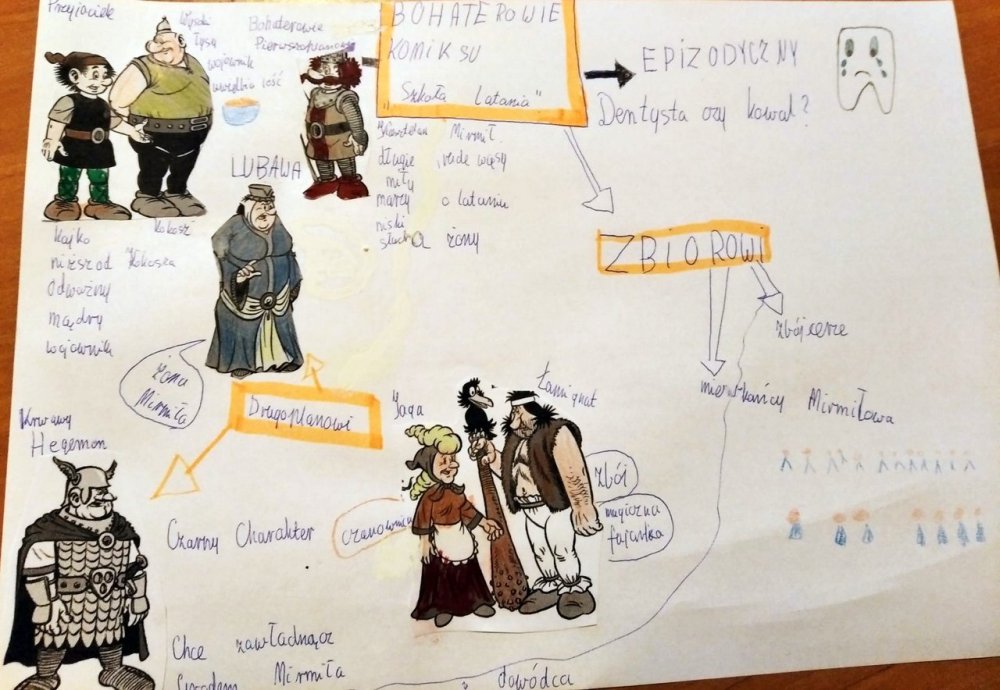 Przyjaciele
Wysoki
Łysy
wojownik
uwielbia jeść
Bohaterowie
Pierwszoplanowi
BOHATEROWIE
KOMIKSU
„Szkoła Latania"
EPIZODYCZNY
Dentysta czy kowal?
Kasztelan Mirmił
długie, rude wąsy
miły
marzy o lataniu
niski
słucha żony
LUBAWA
Kajko
niższ od Kokosza
odważny
mądry
wojownik
Kokosz
żona
Mirmiła
ZBIOROWI
zbójcerze
mieszkańcy Mirmiłowa
Drugoplanowi
Jaga
czarownica
Łamignat
zbój
magiczna
fujarka
Krwawy
Hegemon
Czarny Charakter
Chce zawładnącz
Grodem Mirmiła
dowódca